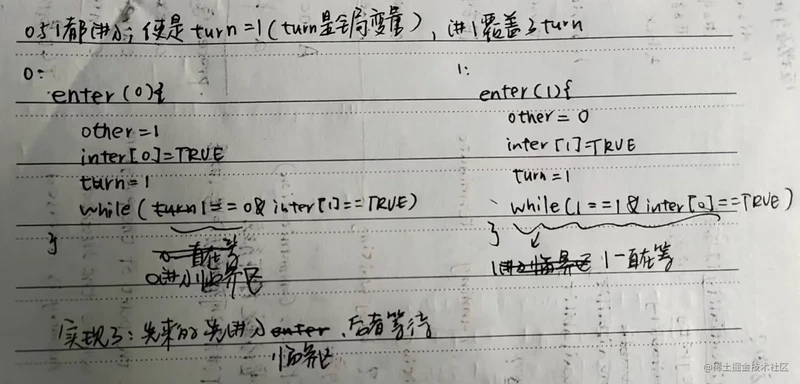 0与1都进入; 使是turn=1(turn是全局变量), 进1覆盖了turn
0:
enter(0){
other=1
inter[0]=TRUE
turn=1
while(turn1==0& inter[1]==TRUE)
}
0一直在等
0进入临界区
1:
enter(1){
other=0
inter[1]=TRUE
turn=1
while(1==1& inter[0]==TRUE)
}
1进入临界区 1一直在等
实现了:先来的先进入enter, 后者等待
临界区
@稀土掘金技术社区